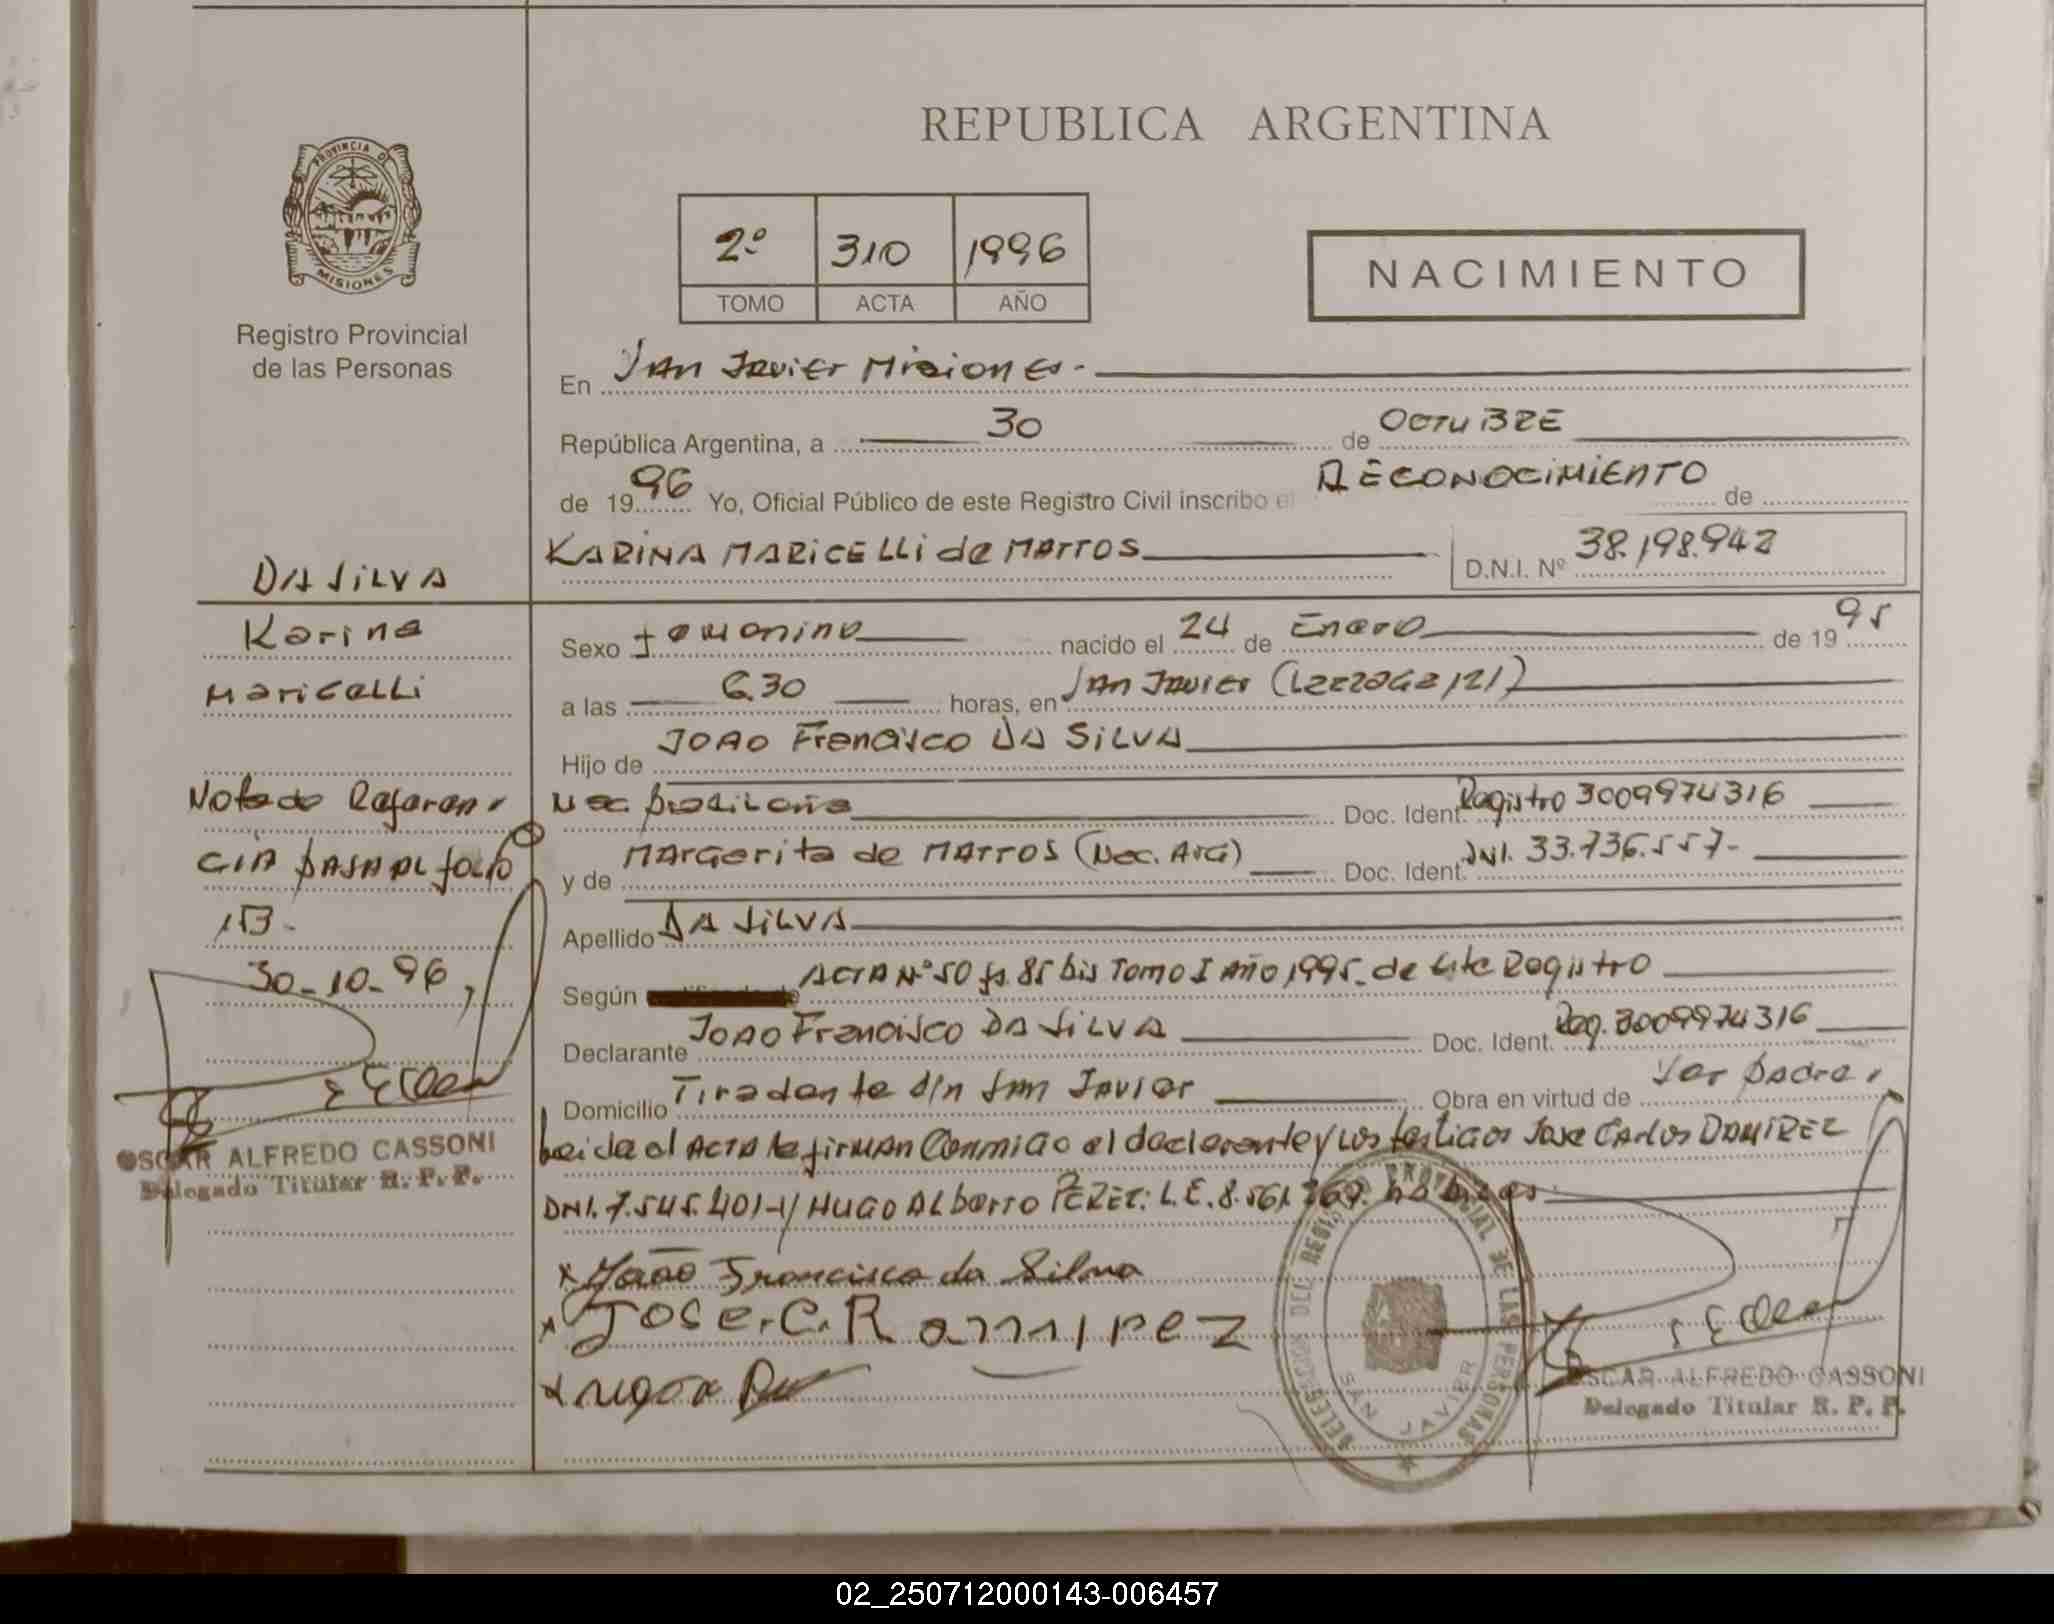 REPUBLICA ARGENTINA
PROVINCIA DE MISIONES
Registro Provincial
de las Personas
2º 310 1996
TOMO ACTA AÑO
NACIMIENTO
En San Javier Misiones.-
República Argentina, a 30 de OCTUBRE
de 1996 Yo, Oficial Público de este Registro Civil inscribo el RECONOCIMIENTO de
KARINA MARICELLI de MATTOS D.N.I. Nº 38.198.942
DA SILVA
Karina
Maricelli
Nota de Referen-
CIA PASA AL folio
153-
30-10-96,
OSCAR ALFREDO CASSONI
Delegado Titular R. P. P.
Sexo femenino nacido el 24 de Enero de 1995
a las 6.30 horas, en San Javier
Hijo de JOAO Francisco DA SILVA
Nac. brasileña Doc. Ident. Registro 3009974316
y de MArgarita de MATTOS (Nac. ArG) Doc. Ident. DNI. 33.736.557-
Apellido DA SILVA
Según ACTA Nº 50 fs. 85 bis Tomo I Año 1995. de este Registro
Declarante JOAO Francisco DA SILVA Doc. Ident. Reg. 3009974316
Domicilio Tiradente s/n San Javier Obra en virtud de Ser padre,
Leida el ACTA la firman Conmigo el declarante y Los testigos José Carlos RAMIREZ
DNI. 7.545.401-y HUGO ALberto PEREZ: L.E. 8.561.369.
x João Francisco da Silva
x JOSE.C.RamIREZ
DELEGACION DEL REGISTRO PROVINCIAL DE LAS PERSONAS
SAN JAVIER
OSCAR ALFREDO CASSONI
Delegado Titular R. P. P.
02_250712000143-006457